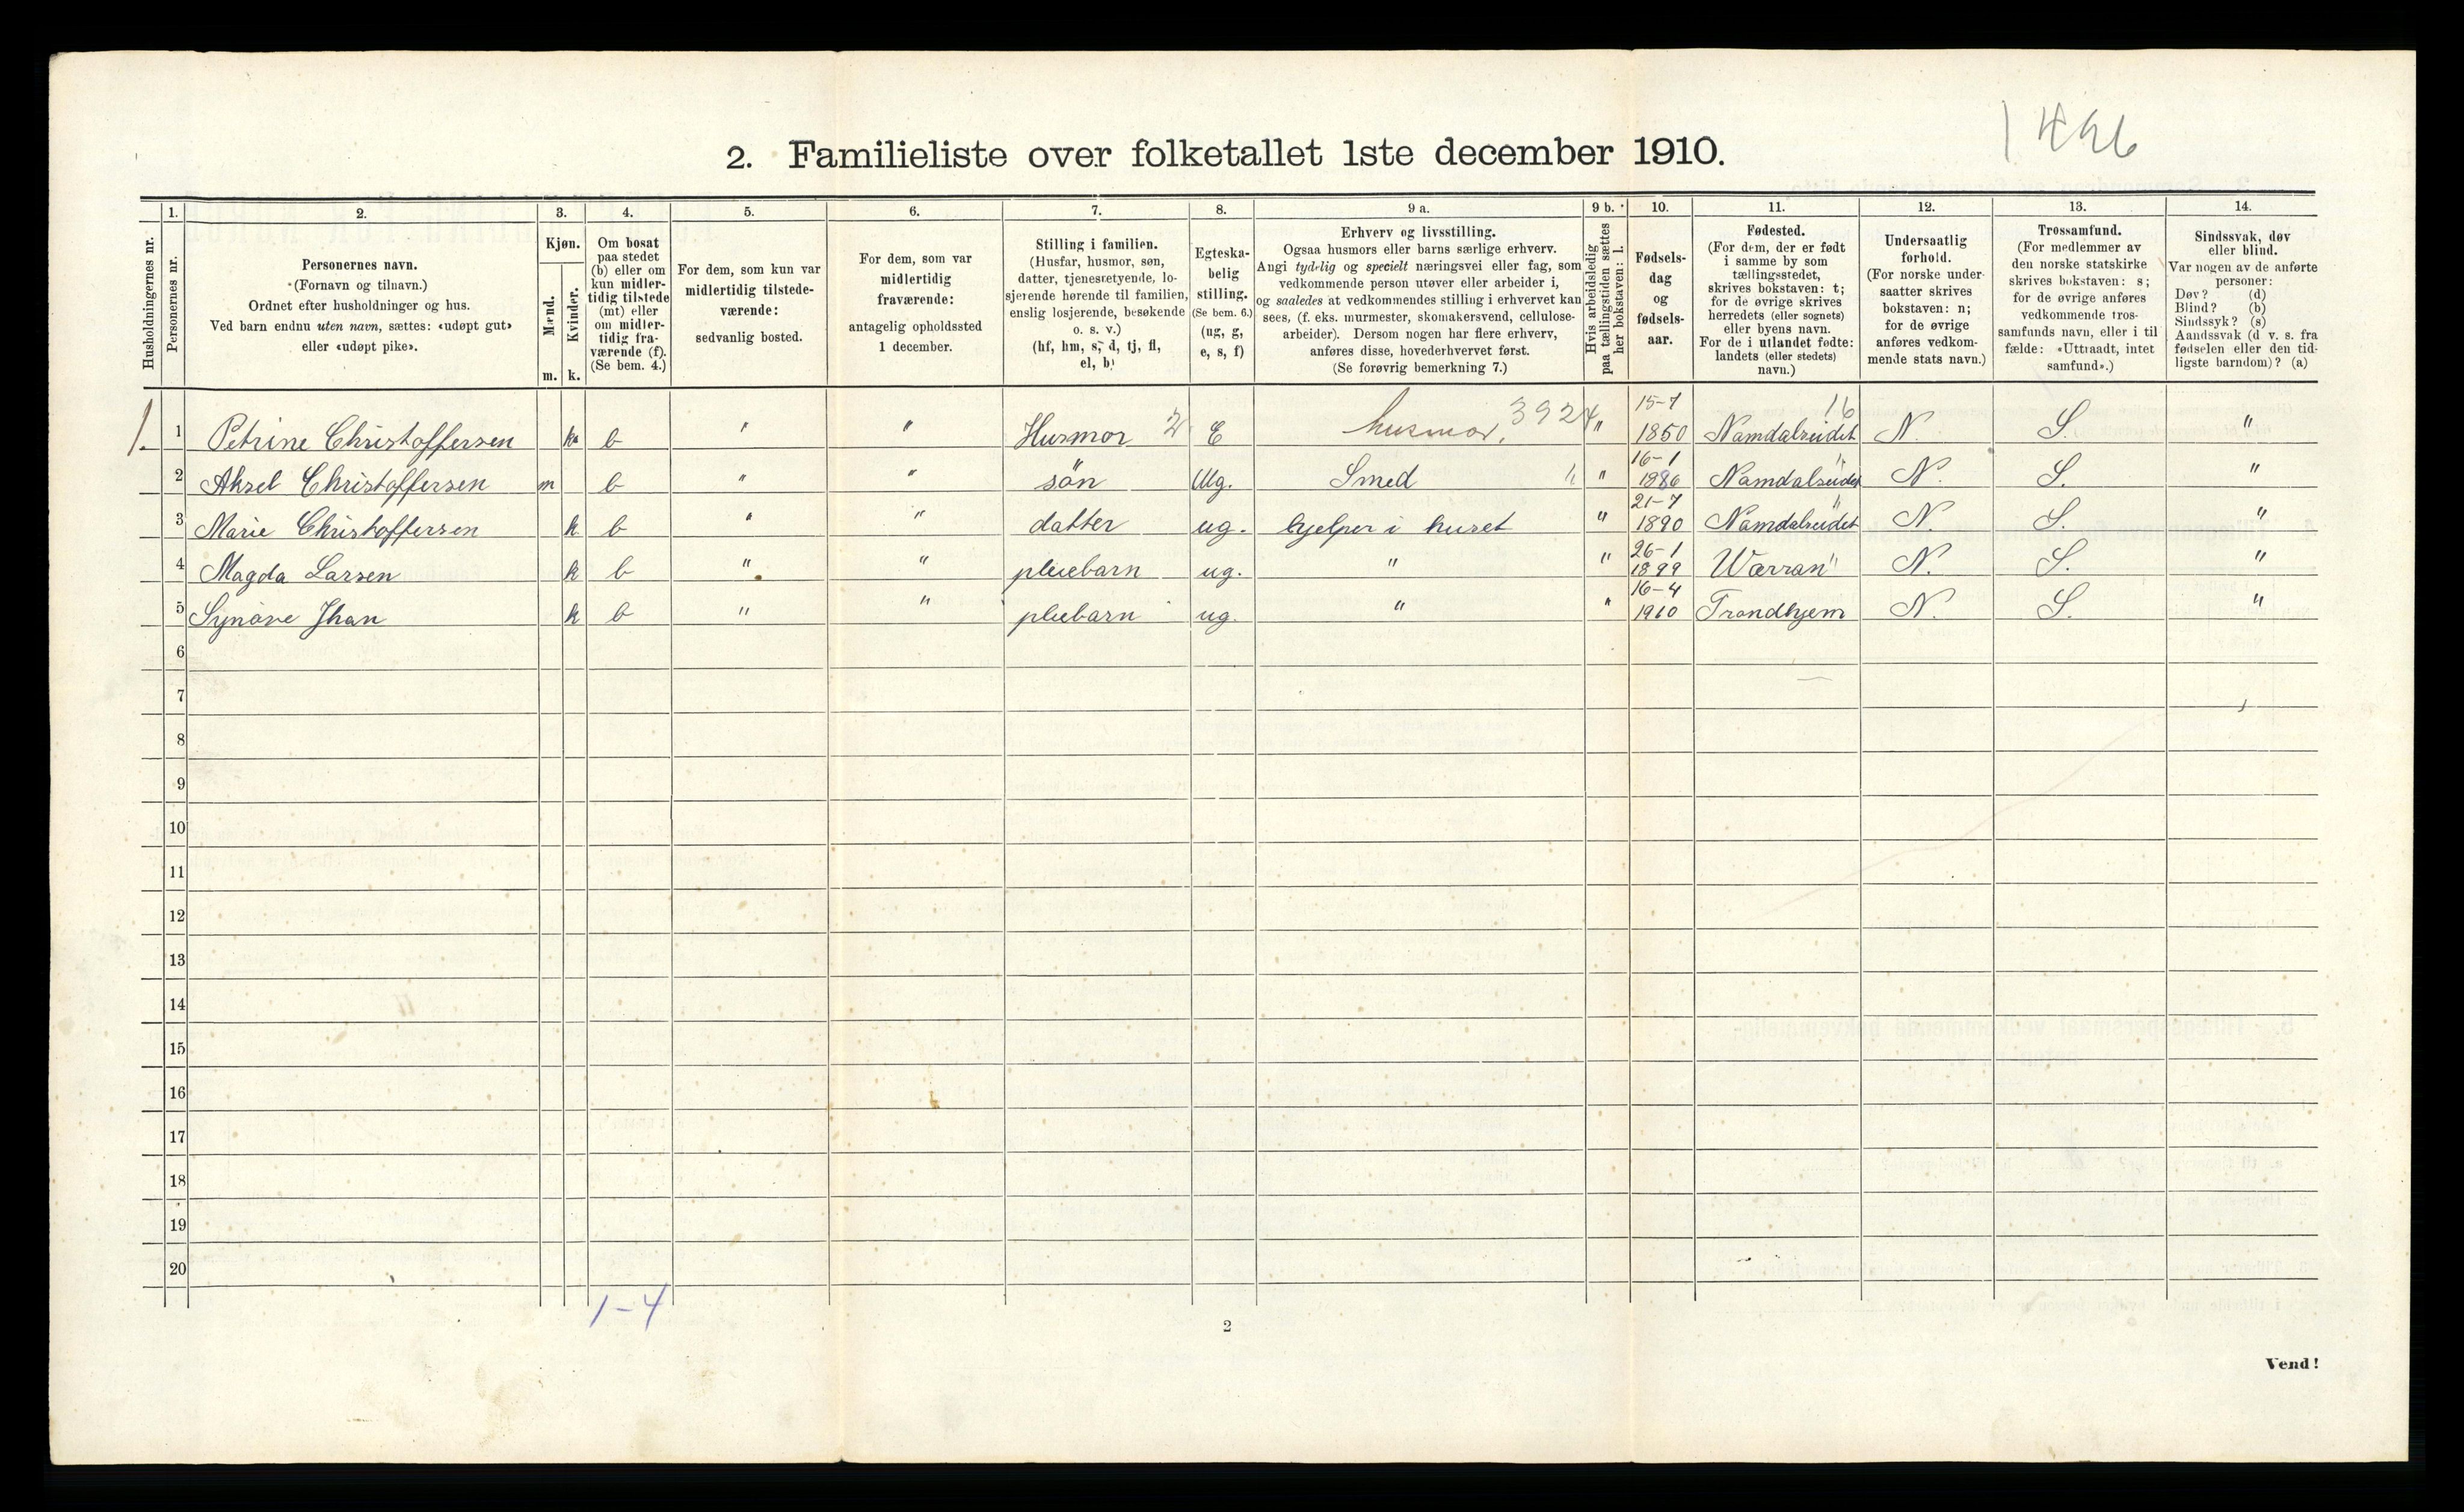 1496
2. Familieliste over folketallet 1ste december 1910.
Husholdningernes nr.
1.
Personernes nr.
2.
Personernes navn.
(Fornavn og tilnavn.)
Ordnet efter husholdninger og hus.
Ved barn endnu uten navn, sættes: «udøpt gut»
eller «udøpt pike».
3.
Kjøn.
Mænd.
Kvinder.
m. k.
4.
Om bosat
paa stedet
(b) eller om
kun midler-
tidig tilstede
(mt) eller
om midler-
tidig fra-
værende (f).
(Se bem. 4.)
5.
For dem, som kun var
midlertidig tilstede-
værende:
sedvanlig bosted.
6.
For dem, som var
midlertidig
fraværende:
antagelig opholdssted
1 december.
7.
Stilling i familien.
(Husfar, husmor, søn,
datter, tjenestetyende, lo-
sjerende hørende til familien,
enslig losjerende, besøkende
o. s. v.)
(hf, hm, s, d, tj, fl,
el, b)
8.
Egteska-
belig
stilling.
(Se bem. 6.)
(ug, g,
e, s, f)
9 a.
Erhverv og livsstilling.
Ogsaa husmors eller barns særlige erhverv.
Angi tydelig og specielt næringsvei eller fag, som
vedkommende person utøver eller arbeider i,
og saaledes at vedkommendes stilling i erhvervet kan
sees, (f. eks. murmester, skomakersvend, cellulose-
arbeider). Dersom nogen har flere erhverv,
anføres disse, hovederhvervet først.
(Se forøvrig bemerkning 7.)
9 b.
Hvis arbeidsledig
paa tællingstiden sættes
her bokstaven: l.
10.
Fødsels-
dag
og
fødsels-
aar.
11.
Fødested.
(For dem, der er født
i samme by som
tællingsstedet,
skrives bokstaven: t;
for de øvrige skrives
herredets (eller sognets)
eller byens navn.
For de i utlandet fødte:
landets (eller stedets)
navn.)
12.
Undersaatlig
forhold.
(For norske under-
saatter skrives
bokstaven: n;
for de øvrige
anføres vedkom-
mende stats navn.)
13.
Trossamfund.
(For medlemmer av
den norske statskirke
skrives bokstaven: s;
for de øvrige anføres
vedkommende tros-
samfunds navn, eller i til
fælde: «Uttraadt, intet
samfund».)
14.
Sindssvak, døv
eller blind.
Var nogen av de anførte
personer:
Døv? (d)
Blind? (b)
Sindssyk? (s)
Aandssvak (d v. s. fra
fødselen eller den tid-
ligste barndom)? (a)
1. 1 Petrine Christoffersen k b " " Husmor 2 E husmor. 3924 " 15-7 1850 Namdalseidet 16 N. S. "
2 Aksel Christoffersen m b " " sön Ug. Smed " " 16-1 1986 Namdalseidet " N. S. "
3 Marie Christoffersen k b " " datter ug. hjelper i huset " 21-7 1890 Namdalseidet " N. S. "
4 Magda Larsen k b " " pleiebarn ug. " " 26-1 1899 Værran " N. S. "
5 Synöve Jhan k b " " pleiebarn ug. " " 16-4 1910 Trondhjem N. S. "
6
7
8
9
10
11
12
13
14
15
16
17
18
19
20
1-4
2
Vend!